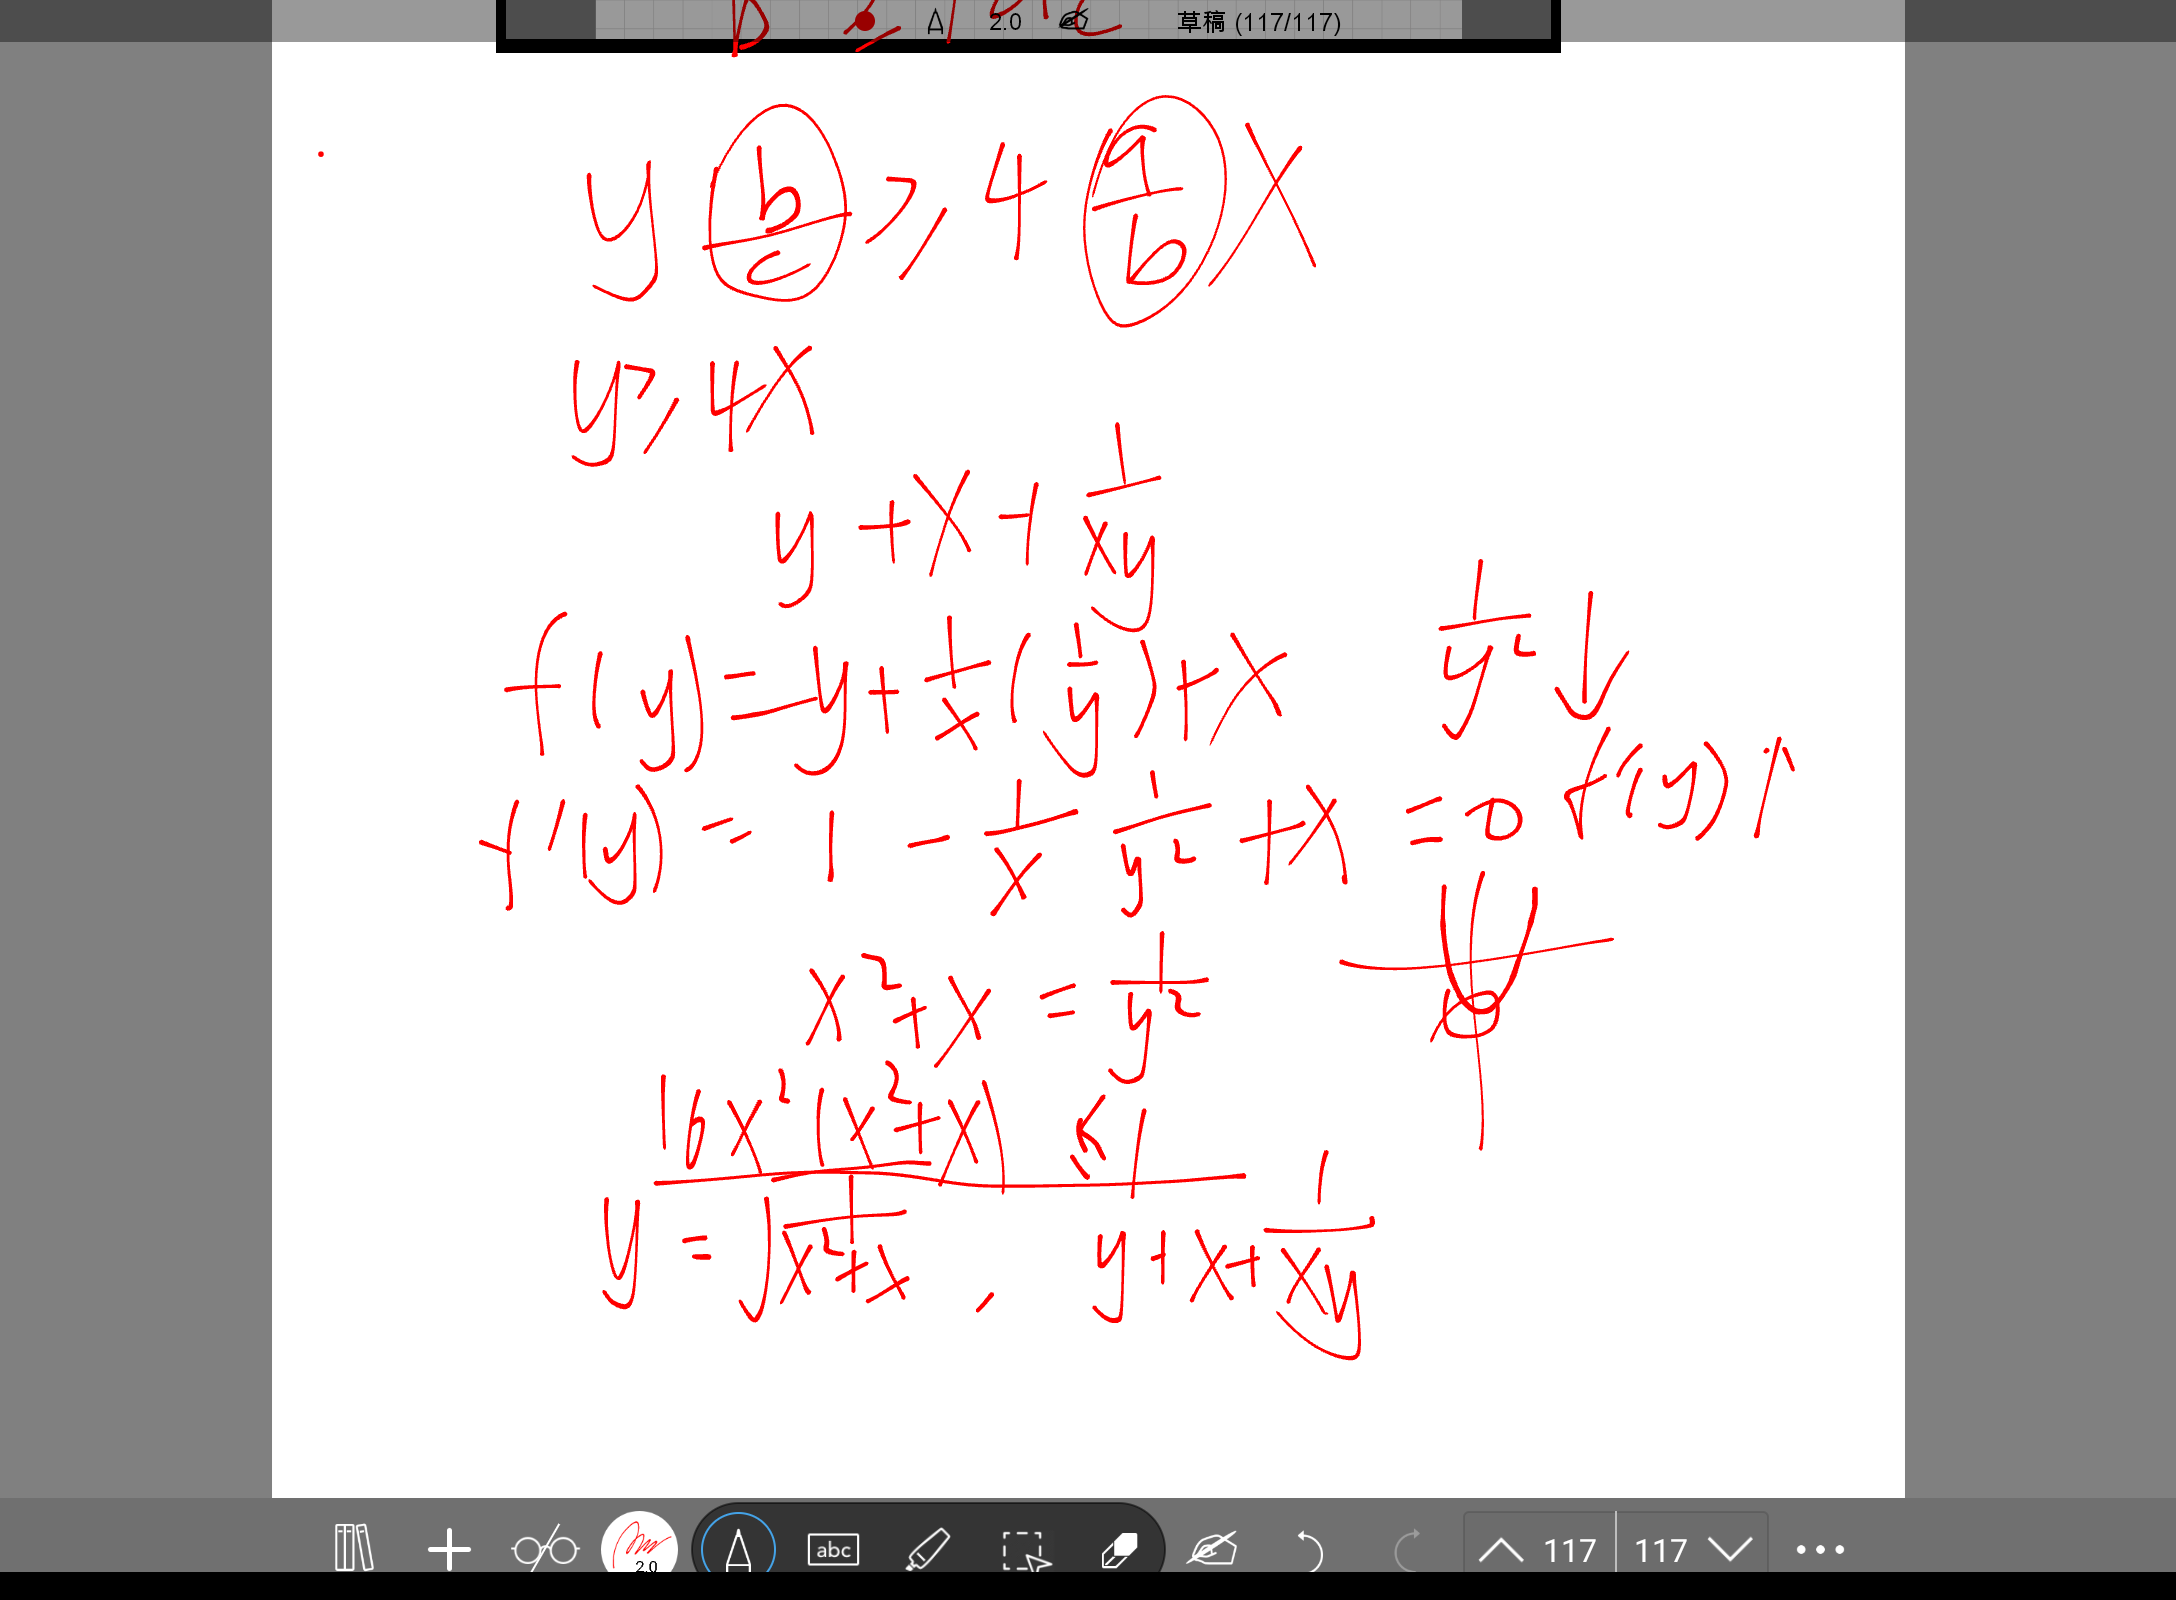 2.0 草稿 (117/117)
y b/c ≥ 4 a/b x
y ≥ 4x
y + x + 1/xy
f(y) = y + 1/x (1/y) + x 1/y² ↓
f'(y) = 1 - 1/x 1/y² + x = 0 f'(y) ↑
x² + x = 1/y²
16x² (x² + x) ≤ 1
y = √(1/(x² + x)) , y + x + 1/xy
2.0 abc 117 117